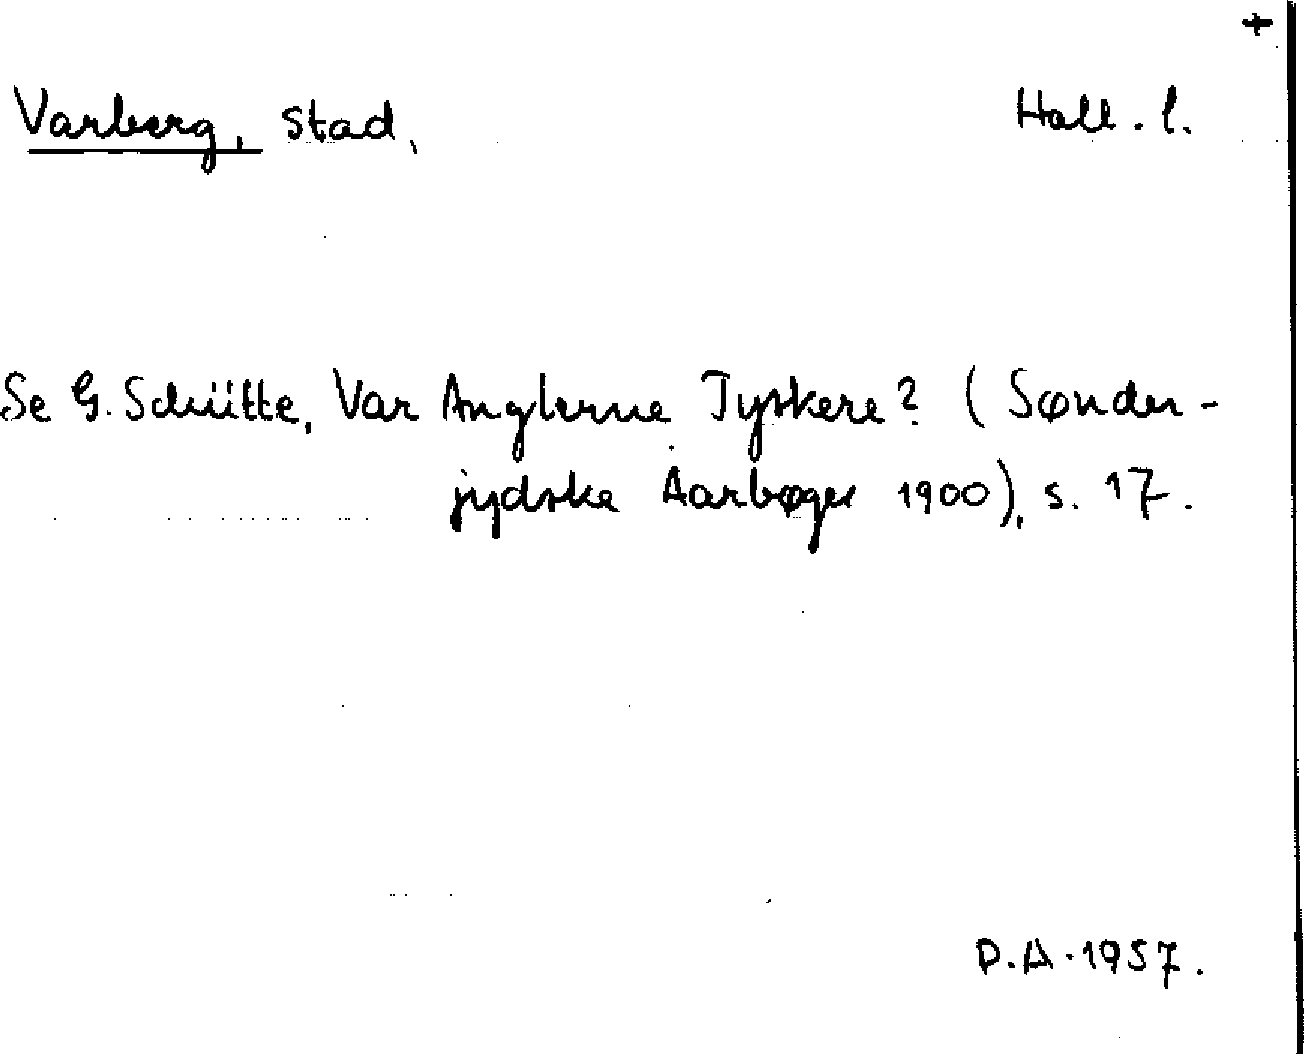 +
Varberg, stad, Hall. l.
Se G. Schütte, Var Anglerne Tyskere? (Sønder-
jydske Aarbøger 1900), s. 17.
D.A. 1957.